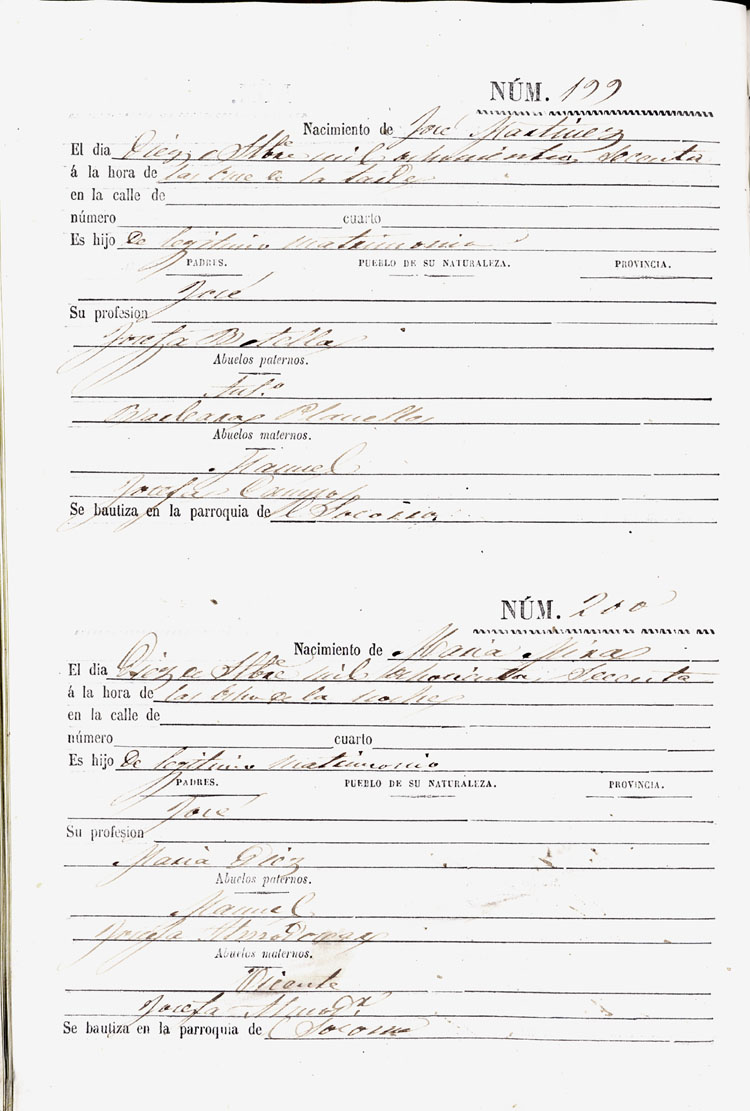 NÚM. 199
Nacimiento de José Martinez
El dia Diez e Stbre mil ochocientos Secenta
á la hora de las once de la tarde
en la calle de
número cuarto
Es hijo de legitimo matrimonio
PADRES. PUEBLO DE SU NATURALEZA. PROVINCIA.
José
Su profesion
Josefa Botella
Abuelos paternos.
Ant.º
Planelles
Abuelos maternos.
Manuel
Josefa Campos
Se bautiza en la parroquia de Socorro
NÚM. 200
Nacimiento de Maria Mira
El dia Diez e Stbre mil ochocientos Secenta
á la hora de las ocho de la noche
en la calle de
número cuarto
Es hijo de legitimo matrimonio
PADRES. PUEBLO DE SU NATURALEZA. PROVINCIA.
José
Su profesion
Maria Diez
Abuelos paternos.
Manuel
Josefa Almodovar
Abuelos maternos.
Vicente
Josefa Almod.r
Se bautiza en la parroquia de Socorro